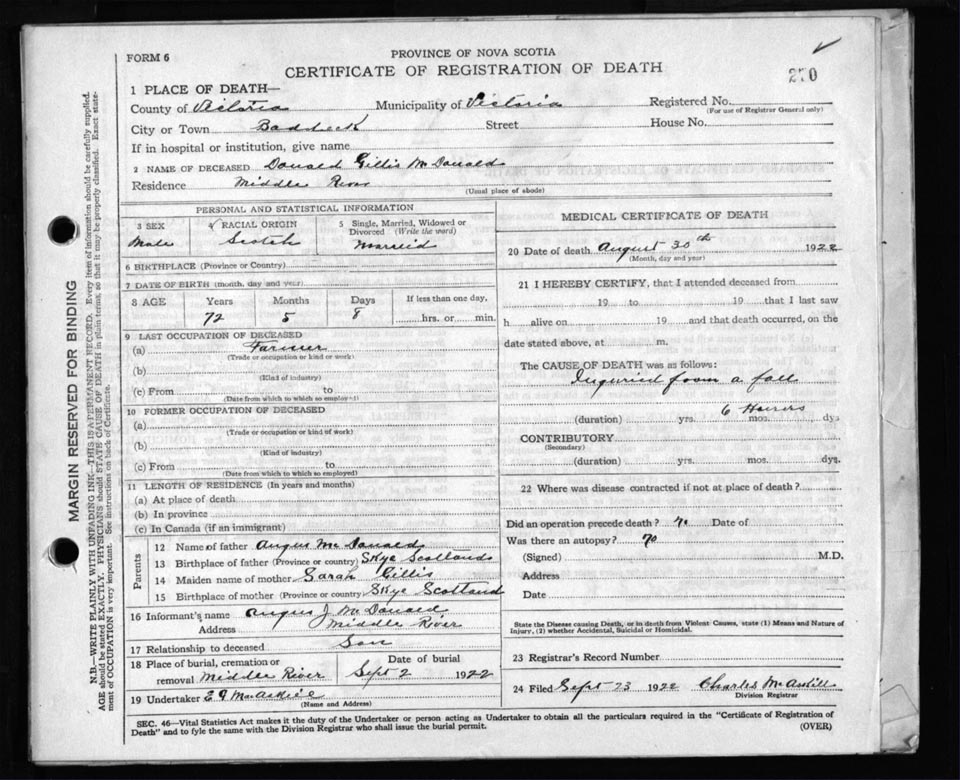 FORM 6
PROVINCE OF NOVA SCOTIA
CERTIFICATE OF REGISTRATION OF DEATH
270
1 PLACE OF DEATH—
County of Victoria Municipality of Victoria Registered No.
(For use of Registrar General only)
City or Town Baddeck Street House No.
If in hospital or institution, give name
2 NAME OF DECEASED Donald Gillis McDonald
Residence Middle River
(Usual place of abode)
PERSONAL AND STATISTICAL INFORMATION
3 SEX 4 RACIAL ORIGIN 5 Single, Married, Widowed or Divorced (Write the word)
Male Scotch Married
6 BIRTHPLACE (Province or Country)
7 DATE OF BIRTH (month, day and year)
8 AGE Years Months Days If less than one day,
72 5 8 hrs. or min.
9 LAST OCCUPATION OF DECEASED
(a) Farmer
(Trade or occupation or kind or work)
(b)
(Kind of industry)
(c) From to
(Date from which to which so employed)
10 FORMER OCCUPATION OF DECEASED
(a)
(Trade or occupation or kind or work)
(b)
(Kind of industry)
(c) From to
(Date from which to which so employed)
11 LENGTH OF RESIDENCE (In years and months)
(a) At place of death
(b) In province
(c) In Canada (if an immigrant)
Parents
12 Name of father Angus McDonald
13 Birthplace of father (Province or country) Skye Scotland
14 Maiden name of mother Sarah Gillis
15 Birthplace of mother (Province or country) Skye Scotland
16 Informant's name Angus J McDonald
Address Middle River
17 Relationship to deceased Son
18 Place of burial, cremation or removal Middle River Date of burial Sept 2 1922
19 Undertaker
(Name and Address)
MEDICAL CERTIFICATE OF DEATH
20 Date of death August 30th 1922
(Month, day and year)
21 I HEREBY CERTIFY, that I attended deceased from
19 to 19 that I last saw
h alive on 19 and that death occurred, on the
date stated above, at m.
The CAUSE OF DEATH was as follows:
Inguried from a fall
6 Hours
(duration) yrs. mos. dys
CONTRIBUTORY
(Secondary)
(duration) yrs. mos. dys.
22 Where was disease contracted if not at place of death?
Did an operation precede death? no Date of
Was there an autopsy? no
(Signed) M.D.
Address
Date
State the Disease causing Death, or in death from Violent Causes, state (1) Means and Nature of
Injury, (2) whether Accidental, Suicidal or Homicidal.
23 Registrar's Record Number
24 Filed Sept 23 1922 Charles
Division Registrar
SEC. 46—Vital Statistics Act makes it the duty of the Undertaker or person acting as Undertaker to obtain all the particulars required in the "Certificate of Registration of
Death" and to fyle the same with the Division Registrar who shall issue the burial permit.
(OVER)
MARGIN RESERVED FOR BINDING
N.B.—WRITE PLAINLY WITH UNFADING INK—THIS IS A PERMANENT RECORD. Every item of information should be carefully supplied.
AGE should be stated EXACTLY. PHYSICIANS should STATE CAUSE OF DEATH in plain terms, so that it may be properly classified. Exact state-
ment of OCCUPATION is very important. See instructions on back of Certificate.